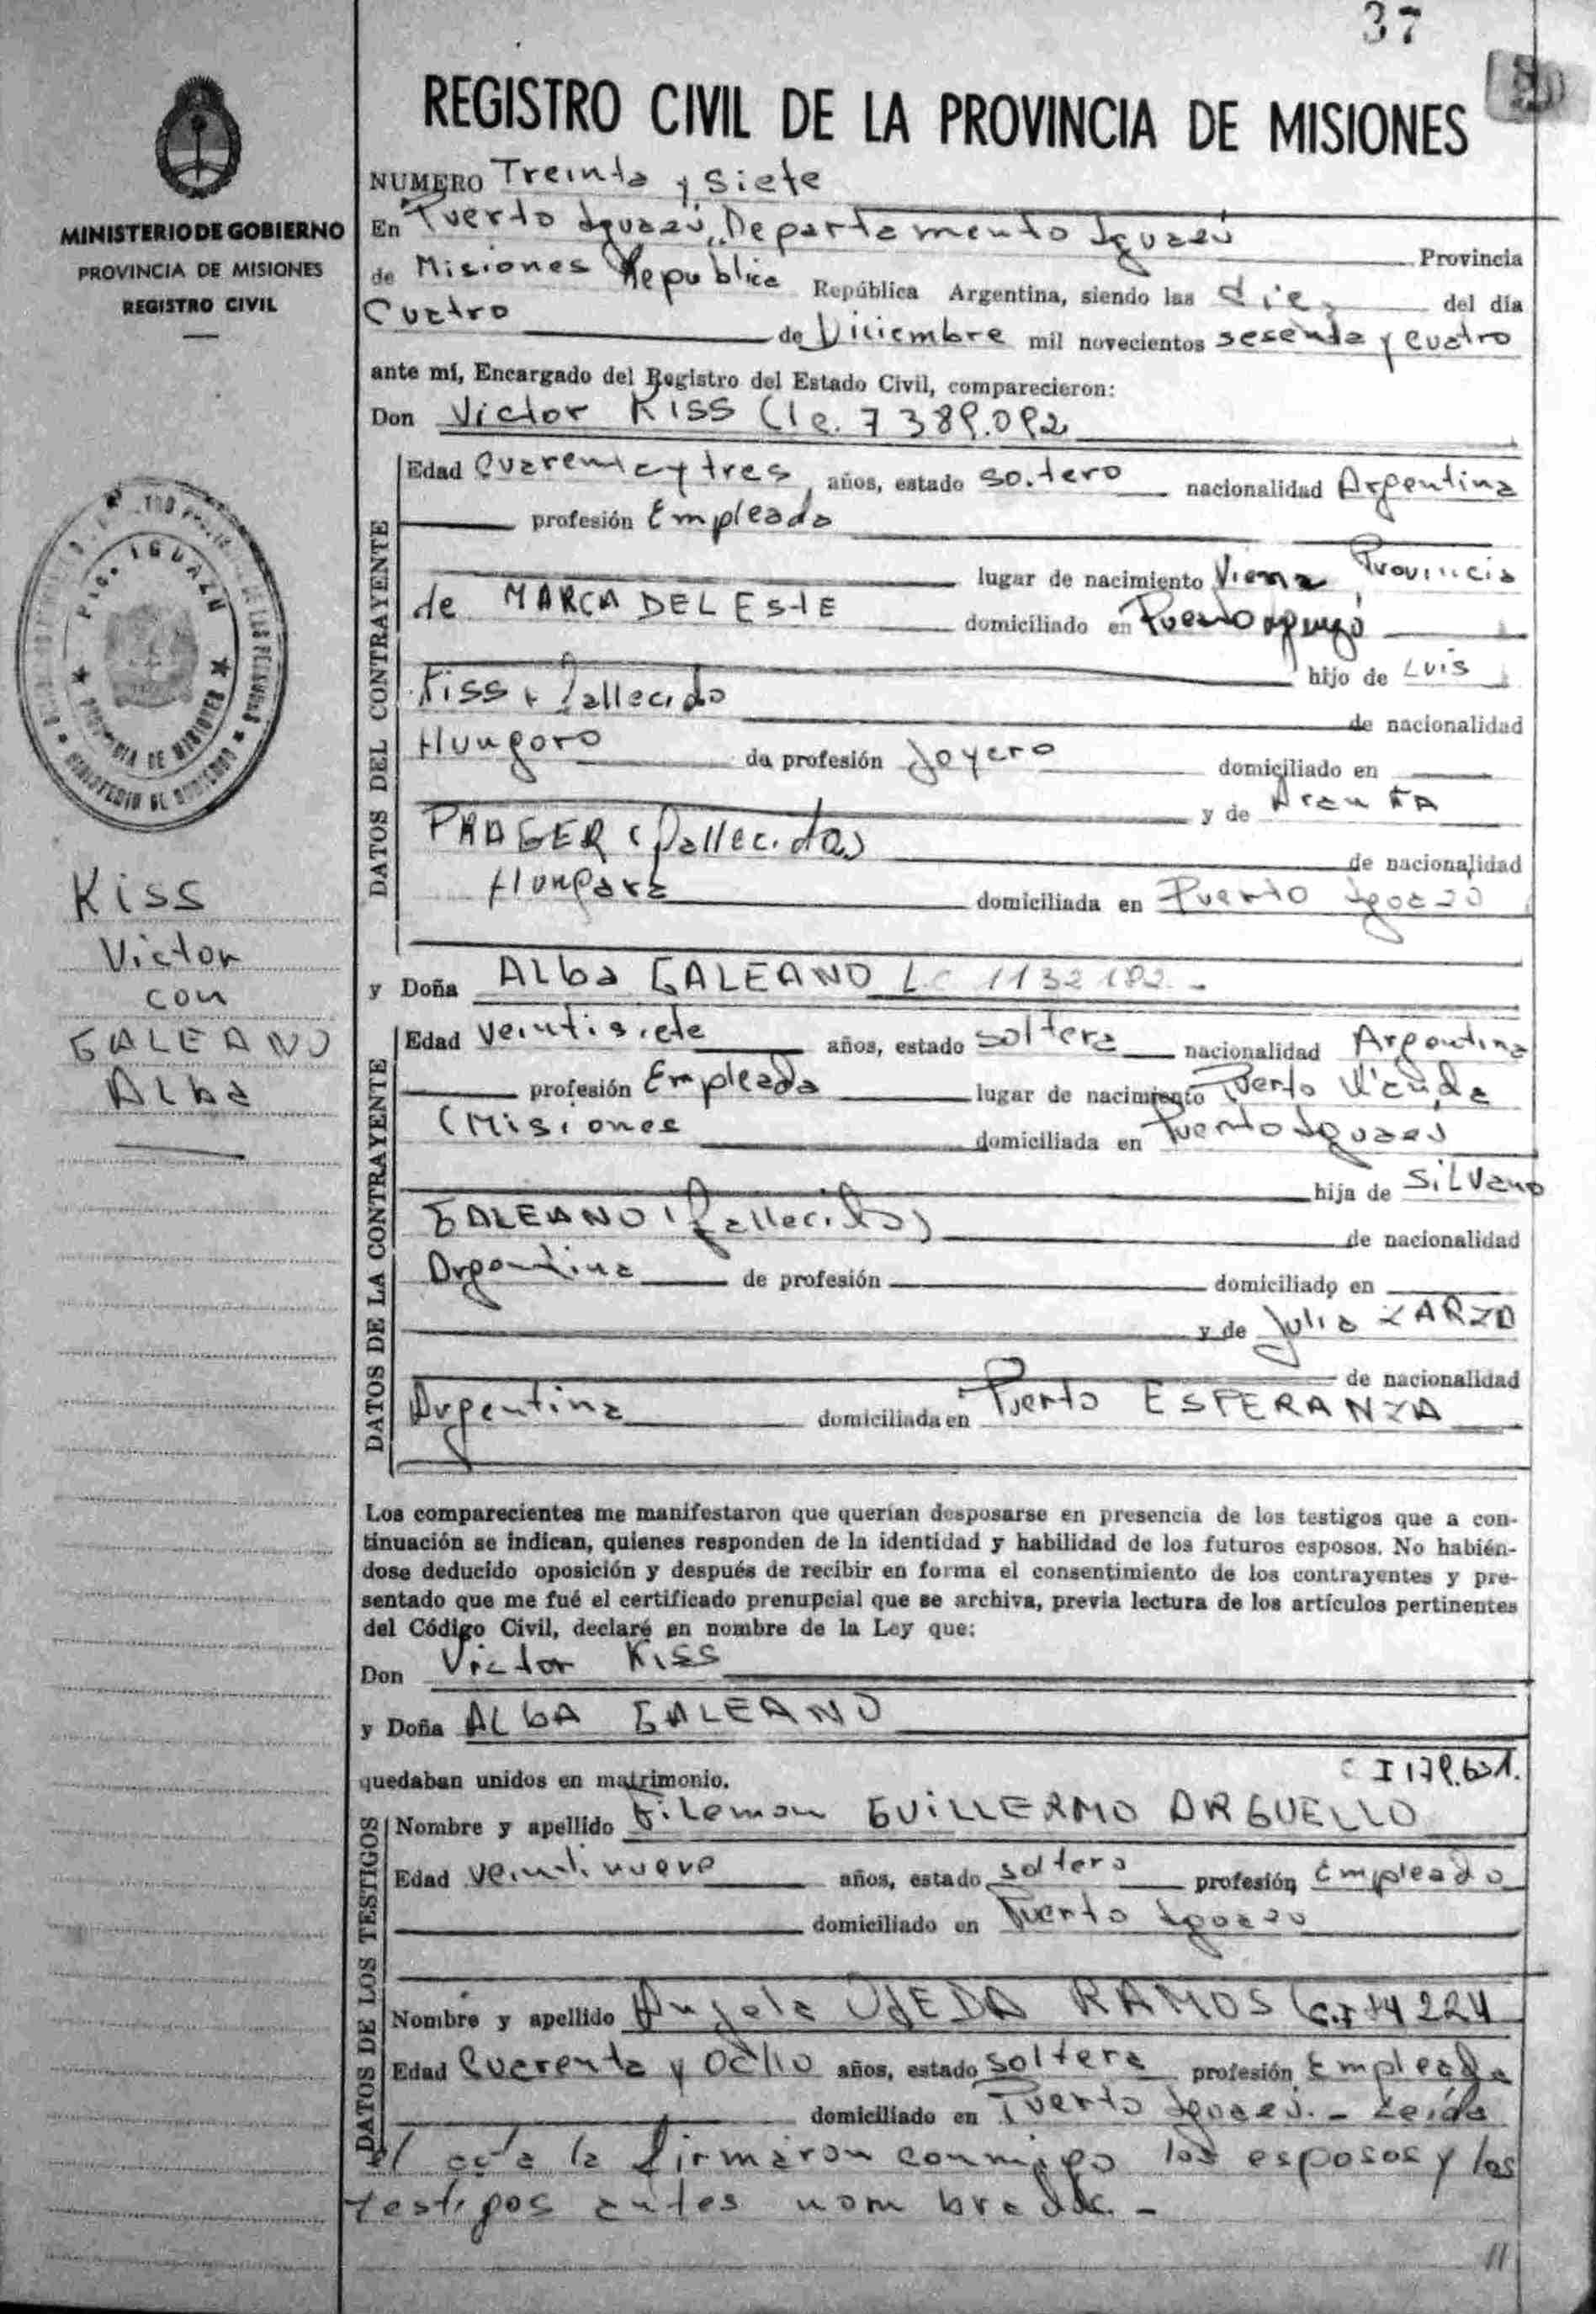 37
REGISTRO CIVIL DE LA PROVINCIA DE MISIONES
MINISTERIO DE GOBIERNO
PROVINCIA DE MISIONES
REGISTRO CIVIL
PTO. IGUAZU
PROVINCIA DE MISIONES
Kiss
Victor
con
GALEANO
Alba
NUMERO Treinta y Siete
En Puerto Iguazú, Departamento Iguazú Provincia
de Misiones Republica República Argentina, siendo las diez del día
Cuatro de Diciembre mil novecientos sesenta y cuatro
ante mí, Encargado del Registro del Estado Civil, comparecieron:
Don Victor KISS
DATOS DEL CONTRAYENTE
Edad Cuarenta y tres años, estado soltero nacionalidad Argentina
profesión Empleado
lugar de nacimiento Viena Provincia
de MARCA DEL EstE domiciliado en Puerto
hijo de Luis
Kiss fallecido de nacionalidad
Hungaro de profesión Joyero domiciliado en
y de
(fallecida) de nacionalidad
Hungara domiciliada en Puerto Iguazú
y Doña Alba GALEANO
DATOS DE LA CONTRAYENTE
Edad veintisiete años, estado soltera nacionalidad Argentina
profesión Empleada lugar de nacimiento Puerto
(Misiones domiciliada en Puerto Iguazú
hija de SilVano
GALEANO (fallecido) de nacionalidad
Argentina de profesión domiciliado en
y de Julia ZARZA
de nacionalidad
Argentina domiciliada en Puerto ESPERANZA
Los comparecientes me manifestaron que querían desposarse en presencia de los testigos que a con-
tinuación se indican, quienes responden de la identidad y habilidad de los futuros esposos. No habién-
dose deducido oposición y después de recibir en forma el consentimiento de los contrayentes y pre-
sentado que me fué el certificado prenupcial que se archiva, previa lectura de los artículos pertinentes
del Código Civil, declaré en nombre de la Ley que:
Don Victor Kiss
y Doña ALbA GALEANO
quedaban unidos en matrimonio.
DATOS DE LOS TESTIGOS
Nombre y apellido Filemon GUILLERMO ARGUELLO
Edad veintinueve años, estado soltero profesión Empleado
domiciliado en Puerto Iguazu
Nombre y apellido Angela OJEDA RAMOS
Edad Cuarenta y Ocho años, estado soltera profesión Empleada
domiciliado en Puerto Iguazú. - Leida
el acta la firmaron conmigo los esposos y los
testigos antes nombrados. -